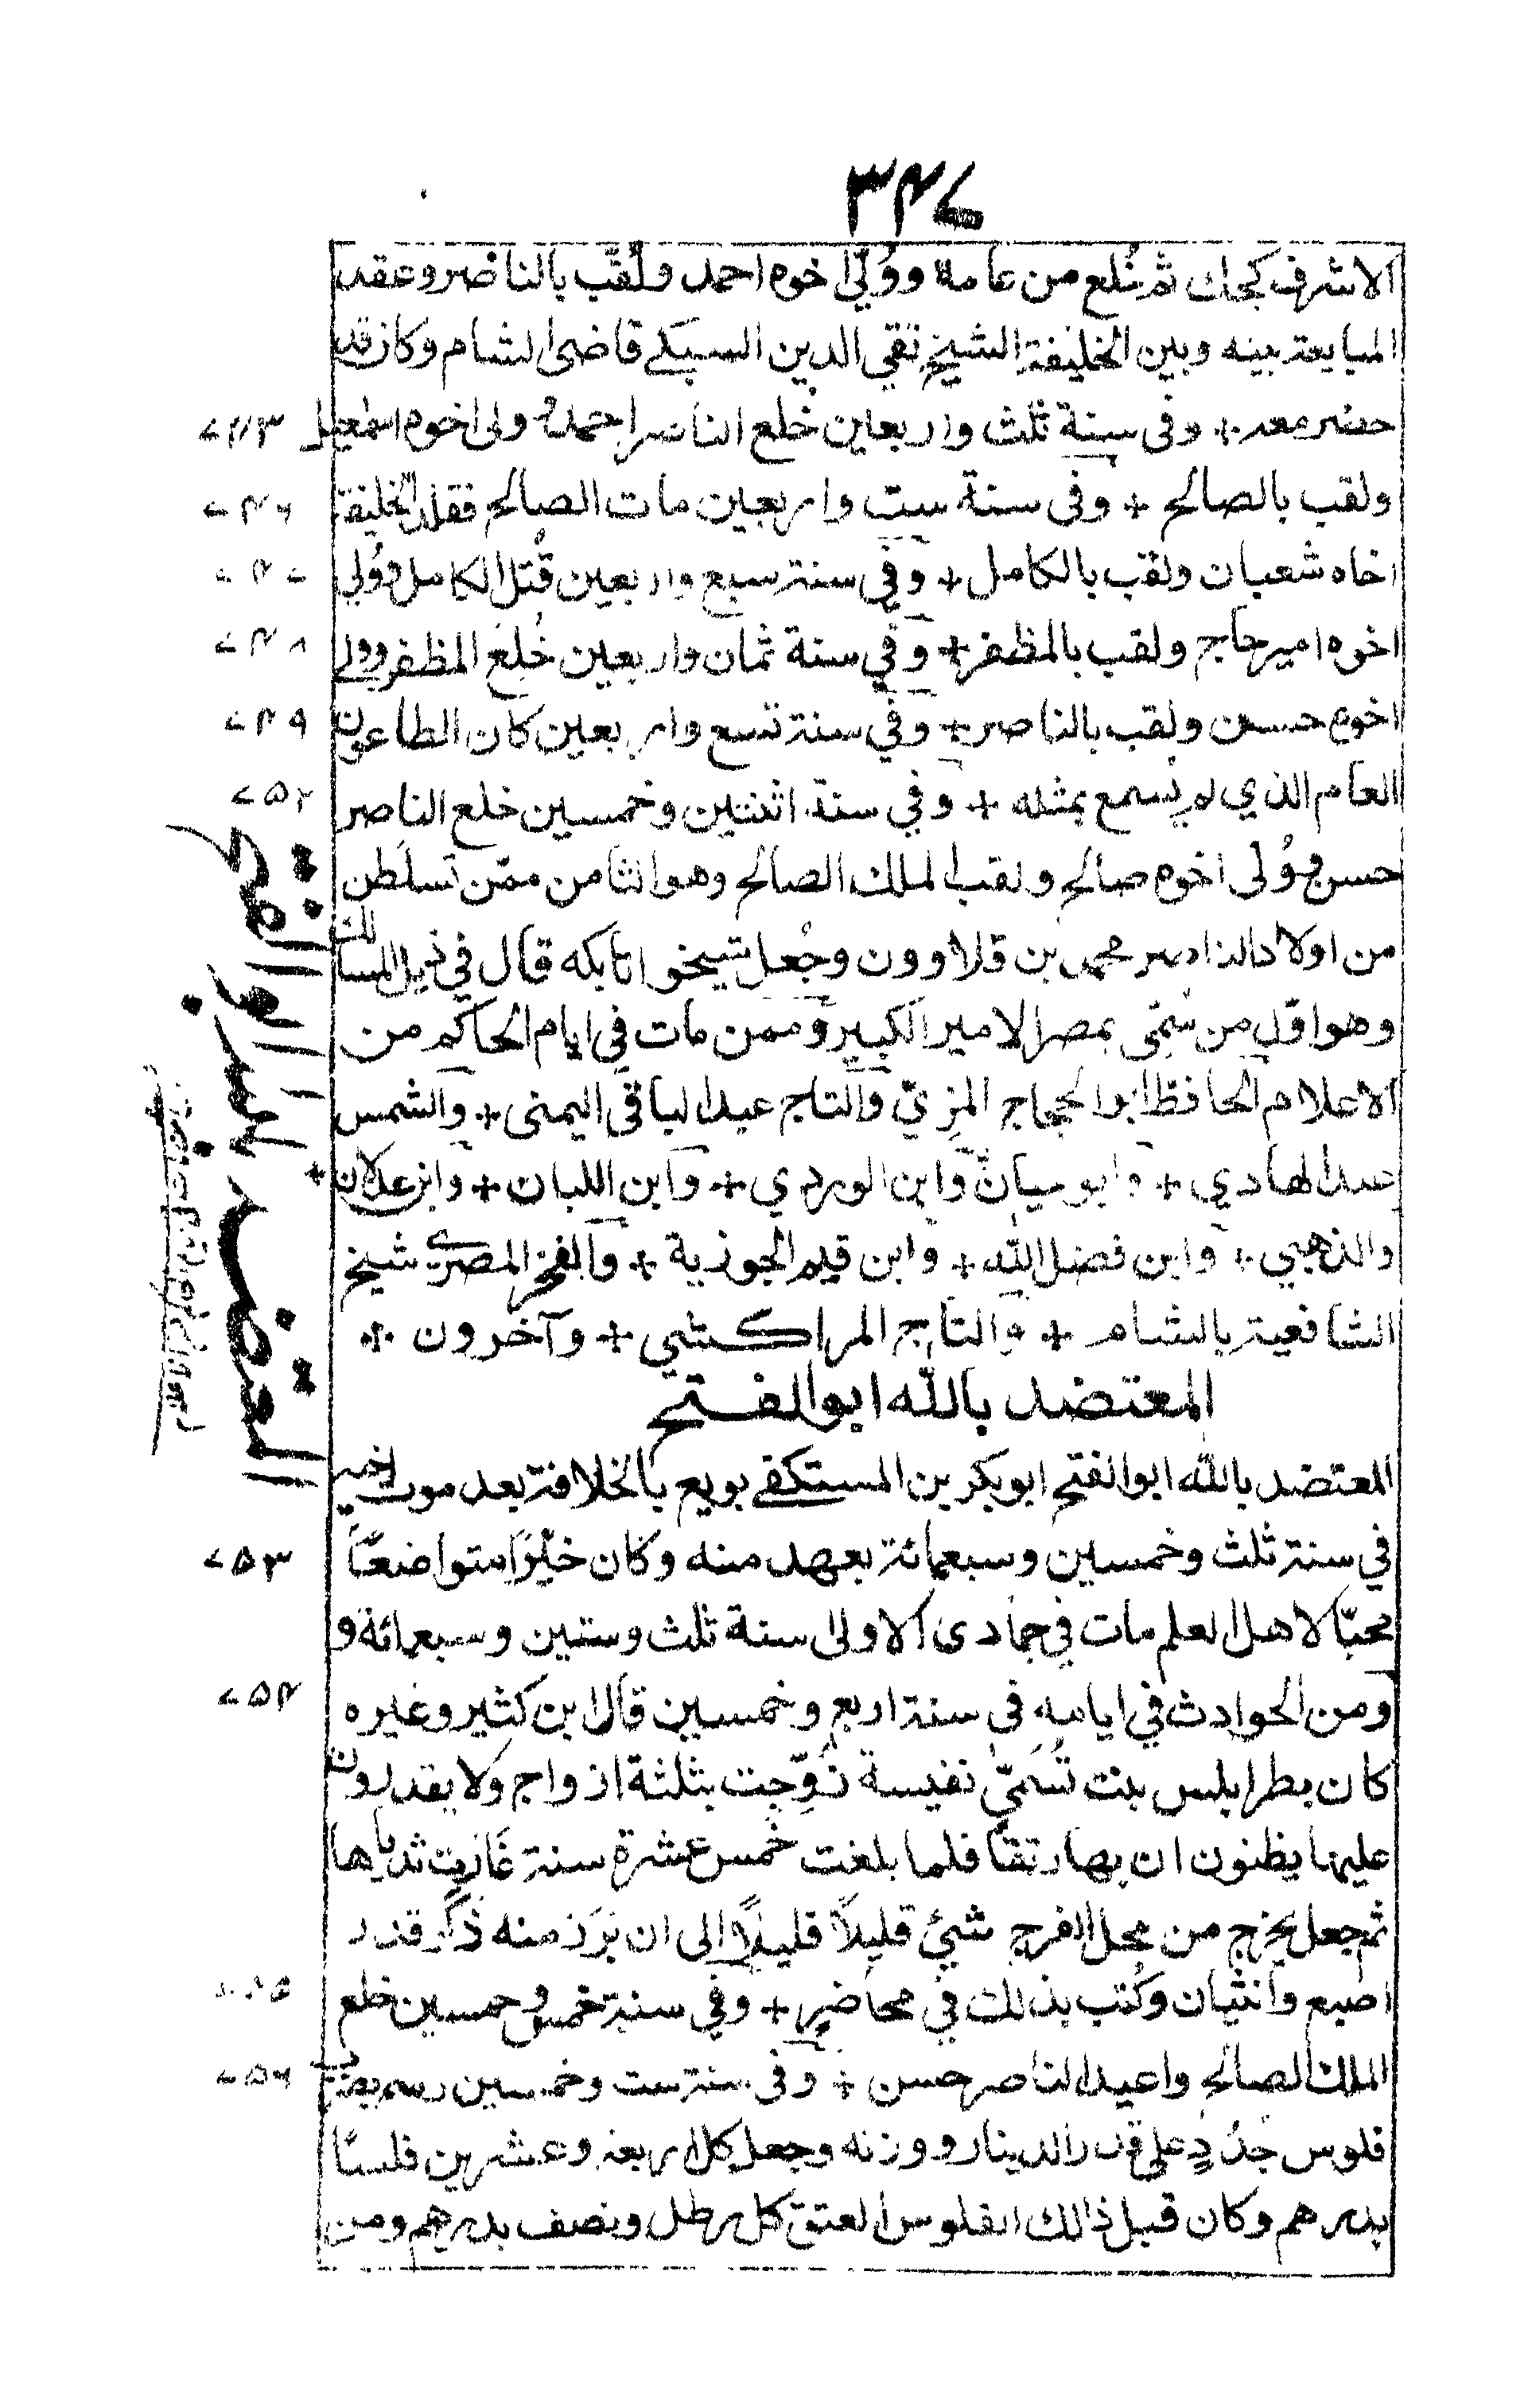 ٣٤٧
الاشرف كجك ثم خُلع من عامه ووُلّى اخوه احمد ولُقّب بالناصر وعقد
المبايعة بينه وبين الخليفة الشيخ تقي الدين السبكے قاضى الشام وكان قد
حضر معه + وفى سنة ثلث واربعين خلع الناصر احمد وولى اخوه اسمعيل
٧٤٣
ولقب بالصالح + وفى سنة ست واربعين مات الصالح فقلد الخليفة
٧٤٦
اخاه شعبان ولقب بالكامل + وفي سنة سبع واربعين قُتل الكامل ووُلي
٧٤٧
اخوه امير حاج ولقب بالمظفر + وفي سنة ثمان واربعين خُلع المظفر وولے
٧٤٨
اخوه حسن ولقب بالناصر + وفي سنة تسع واربعين كان الطاعون
٧٤٩
العام الذي لم يسمع بمثله + وفي سنة اثنتين وخمسين خلع الناصر
٧٥٢
حسن ووُلى اخوه صالح ولقب الملك الصالح وهو الثامن ممّن تسلطن
من اولاد الناصر محمد بن قلاوون وجُعل شيخو اتابكه قال في ذيل المسالك
وهو اوّل من سُمّى بمصر الامير الكبير وممن مات في ايام الحاكم من
الاعلام الحافظ ابو الحجاج المزيّ والتاج عبد الباقى اليمنى + والشمس
عبد الهادي + وابو حيان وابن الوردي + وابن اللبان + وابن عدلان +
والذهبي + وابن فضل الله + وابن قيم الجوزية + والفخر المصري شيخ
الشافعية بالشام + والتاج المراكشي + وآخرون +
المعتضد بالله ابو الفتح
المعتضد بالله ابو الفتح
المعتضد بالله ابو الفتح ابوبكر بن المستكفے بويع بالخلافة بعد موت اخيه
في سنة ثلث وخمسين وسبعمائة بعهد منه وكان خيّرًا متواضعًا
٧٥٣
محبّا لاهل العلم مات في جمادى الاولى سنة ثلث وستين وسبعمائة و
ومن الحوادث في ايامه فى سنة اربع وخمسين قال ابن كثير وغيره
٧٥٤
كان بطرابلس بنت تُسَمّى نفيسة زُوّجت بثلثة ازواج ولا يقدرون
عليها يظنون ان بها رتقًا فلما بلغت خمس عشرة سنة غارت ثدياها
ثم جعل يخرج من محل الفرج شئ قليلاً قليلاً الى ان بَرَز منه ذَكَر قدر
اصبع وانثيان وكُتب بذلك في محاضر + وفي سنة خمس وخمسين خلع
٧٥٥
الملك الصالح واعيد الناصر حسن + وفى سنة ست وخمسين رسم بضرب
٧٥٦
فلوس جُدُد على قدر الدينار ووزنه وجعل كل اربعة وعشرين فلسًا
بدرهم وكان قبل ذالك الفلوس العتق كل رطل ونصف بدرهم ومن